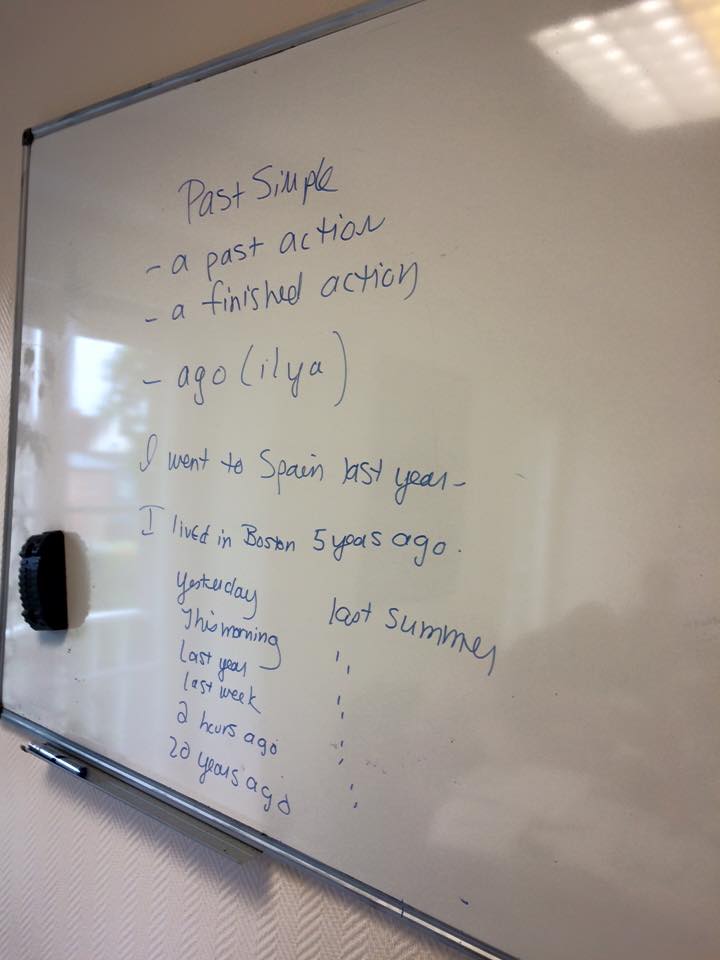 Past Simple
- a past action
- a finished action
- ago (ilya)
I went to Spain last year-
I lived in Boston 5 years ago.
yesterday
This morning
last year
last week
2 hours ago
20 years ago
last summer